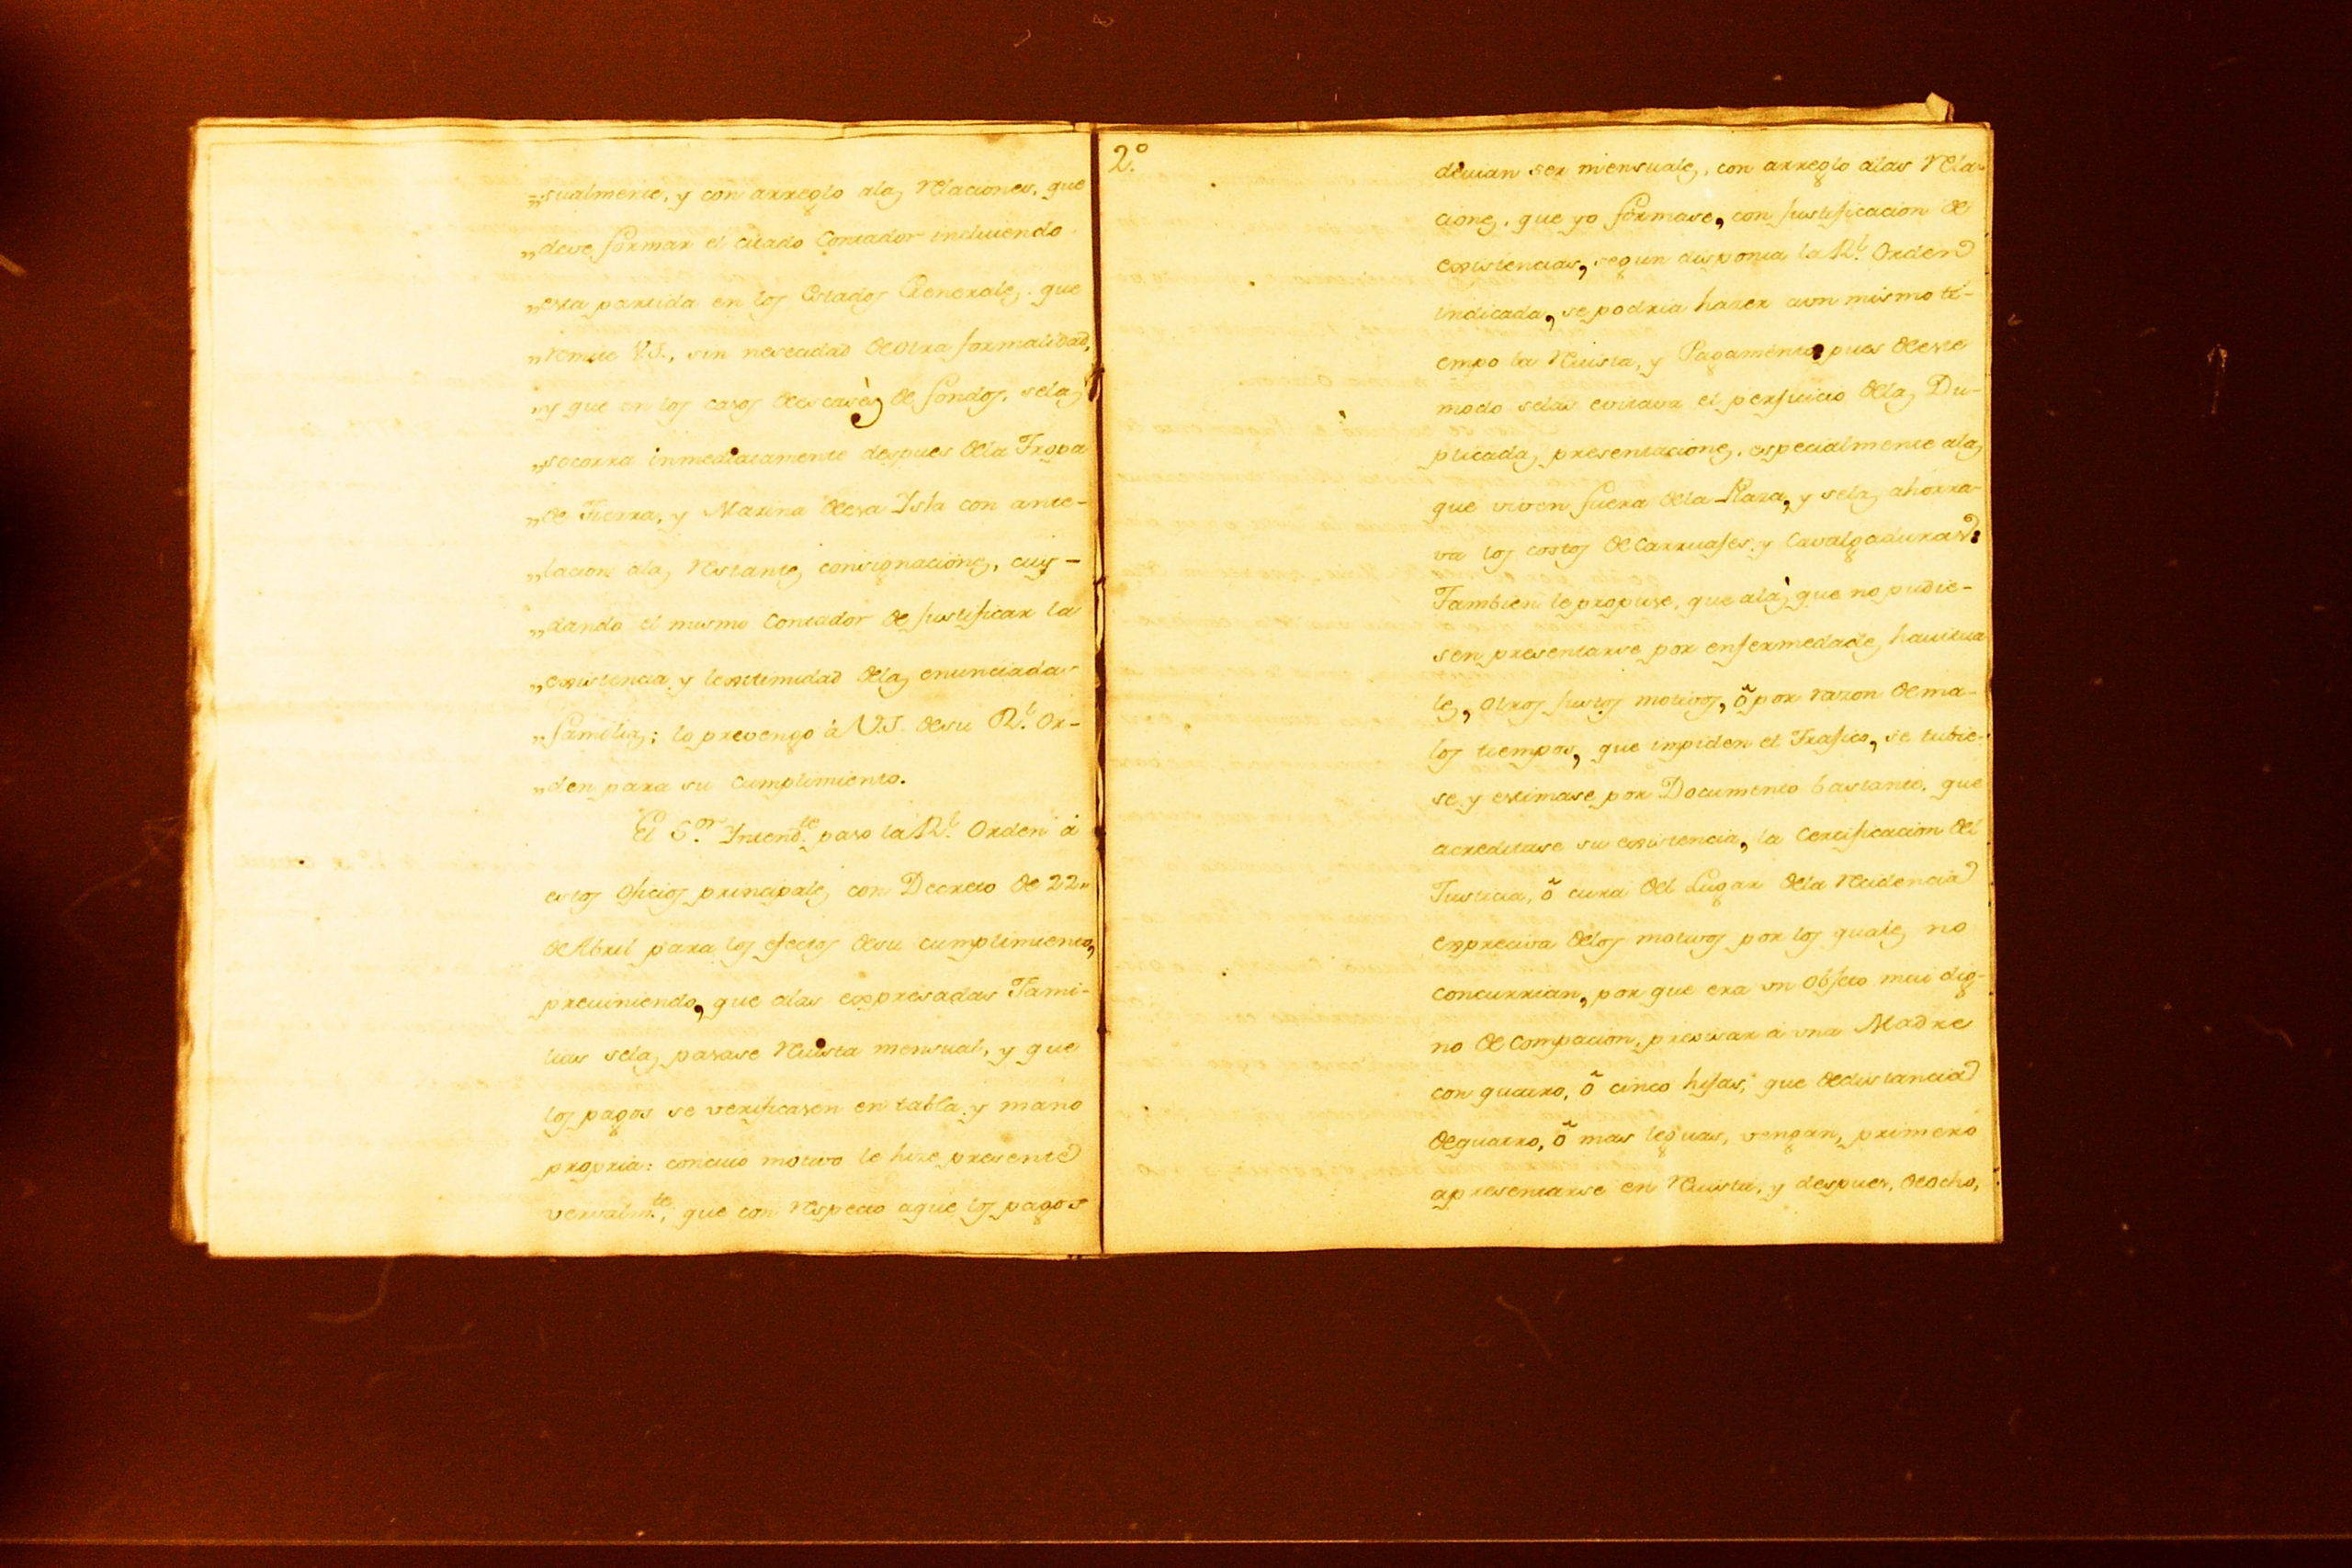 „sualmente, y con arreglo alas relaciones, que
„deve formar el citado Contador incluiendo
„esta partida en los Estados Generales, que
„remite V.S., sin nesecidad deotra formalidad,
„y que en los casos deescasés de fondos, selas
„socorra inmediatamente despues dela Tropa
„de Tierra, y Marina deesa Ysla con ante-
„lacion alas restantes consignaciones, cuy-
„dando el mismo Contador de justificar la
„existencia y lexitimidad delas enunciadas
„familias; lo prevengo à V.S. desu Rl. Or-
„den para su cumplimiento.
El Sor. Intendte. paso la Rl. Orden à
estos oficios principales con Decreto de 22„
de Abril para los efectos desu cumplimiento,
previniendo, que alas expresadas Fami-
lias selas pasase revista mensual, y que
los pagos se verificasen en tabla, y mano
propria: concuio motivo le hize presente
vervalmte., que con respecto aque los pagos
2.º
devian ser mensuales, con arreglo alas rela-
ciones, que yo formase, con justificacion de
existencias, segun disponia la Rl. Orden
indicada, se podria hazer aun mismo ti-
empo la revista, y Pagamento, pues deeste
modo selas evitava el perjuicio delas Du-
plicadas presentaciones, especialmente alas
que viven fuera dela Plaza, y selas ahorra-
va los costos de Carruajes, y Cavalgaduras:
Tambien le propuse, que alas que no pudie-
sen presentarse por enfermedades havitua
les, otros justos motivos, ô por razon dema-
los tiempos, que impiden el Trafico, se tubie-
se y estimase por Documento bastante, que
acreditase su existencia, la Certificacion del
Justicia, ô cura del Lugar dela recidencia
expreciva delos motivos por los quales no
concurrian, por que era un Objeto mui dig-
no de compacion, precisar à una Madre
con quatro, ô cinco hijas, que dedistancia
dequatro, ô mas leguas, vengan, primero
apresentarse en revista, y despues, deocho,